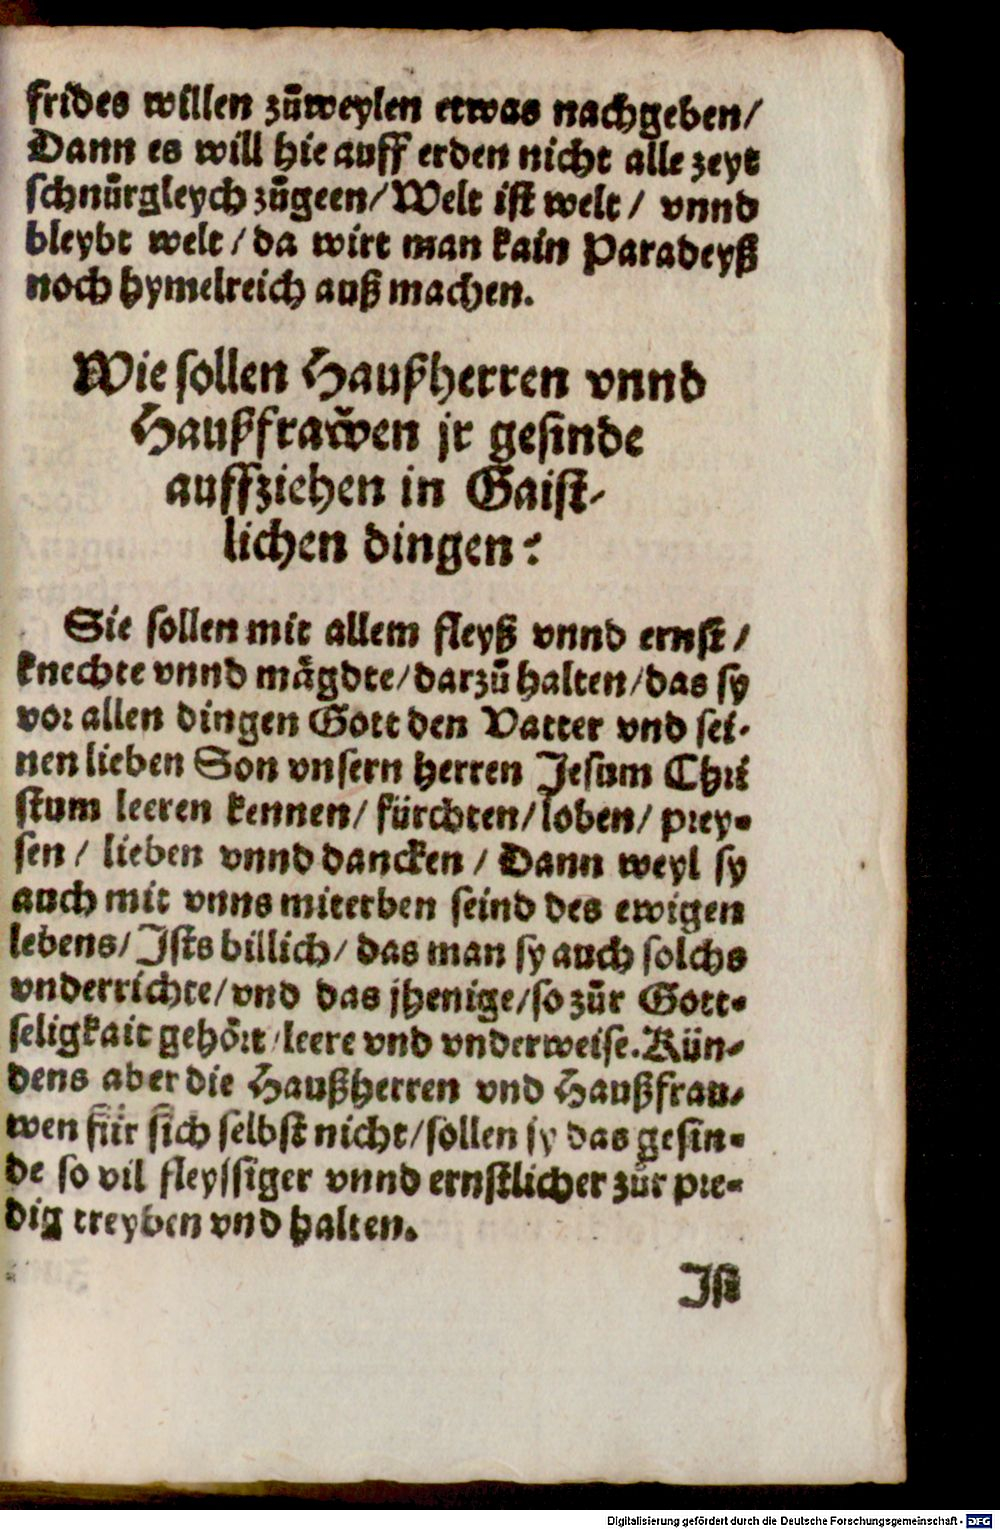 frides willen zůweylen etwas nachgeben/
Dann es will hie auff erden nicht alle zeyt
schnůrgleych zůgeen/Welt ist welt / vnnd
bleybt welt / da wirt man kain Paradeyß
noch hymelreich auß machen.
Wie sollen Haußherren vnnd
Haußfraẅen jr gesinde
auffziehen in Gaist-
lichen dingen?
Sie sollen mit allem fleyß vnnd ernst /
knechte vnnd mägdte/darzů halten/das sy
vor allen dingen Gott den Vatter vnd sei-
nen lieben Son vnsern herren Jesum Chri
stum leeren kennen/ fürchten/loben/ prey-
sen / lieben vnnd dancken / Dann weyl sy
auch mit vnns miterben seind des ewigen
lebens/ Ists billich/ das man sy auch solchs
vnderrichte/vnd das jhenige/so zůr Gott-
seligkait gehört/leere vnd vnderweise.Kün-
dens aber die Haußherren vnd Haußfrau-
wen für sich selbst nicht/sollen sy das gesin-
de so vil fleyssiger vnnd ernstlicher zůr pre-
dig treyben vnd halten.
Ist
Digitalisierung gefördert durch die Deutsche Forschungsgemeinschaft - DFG